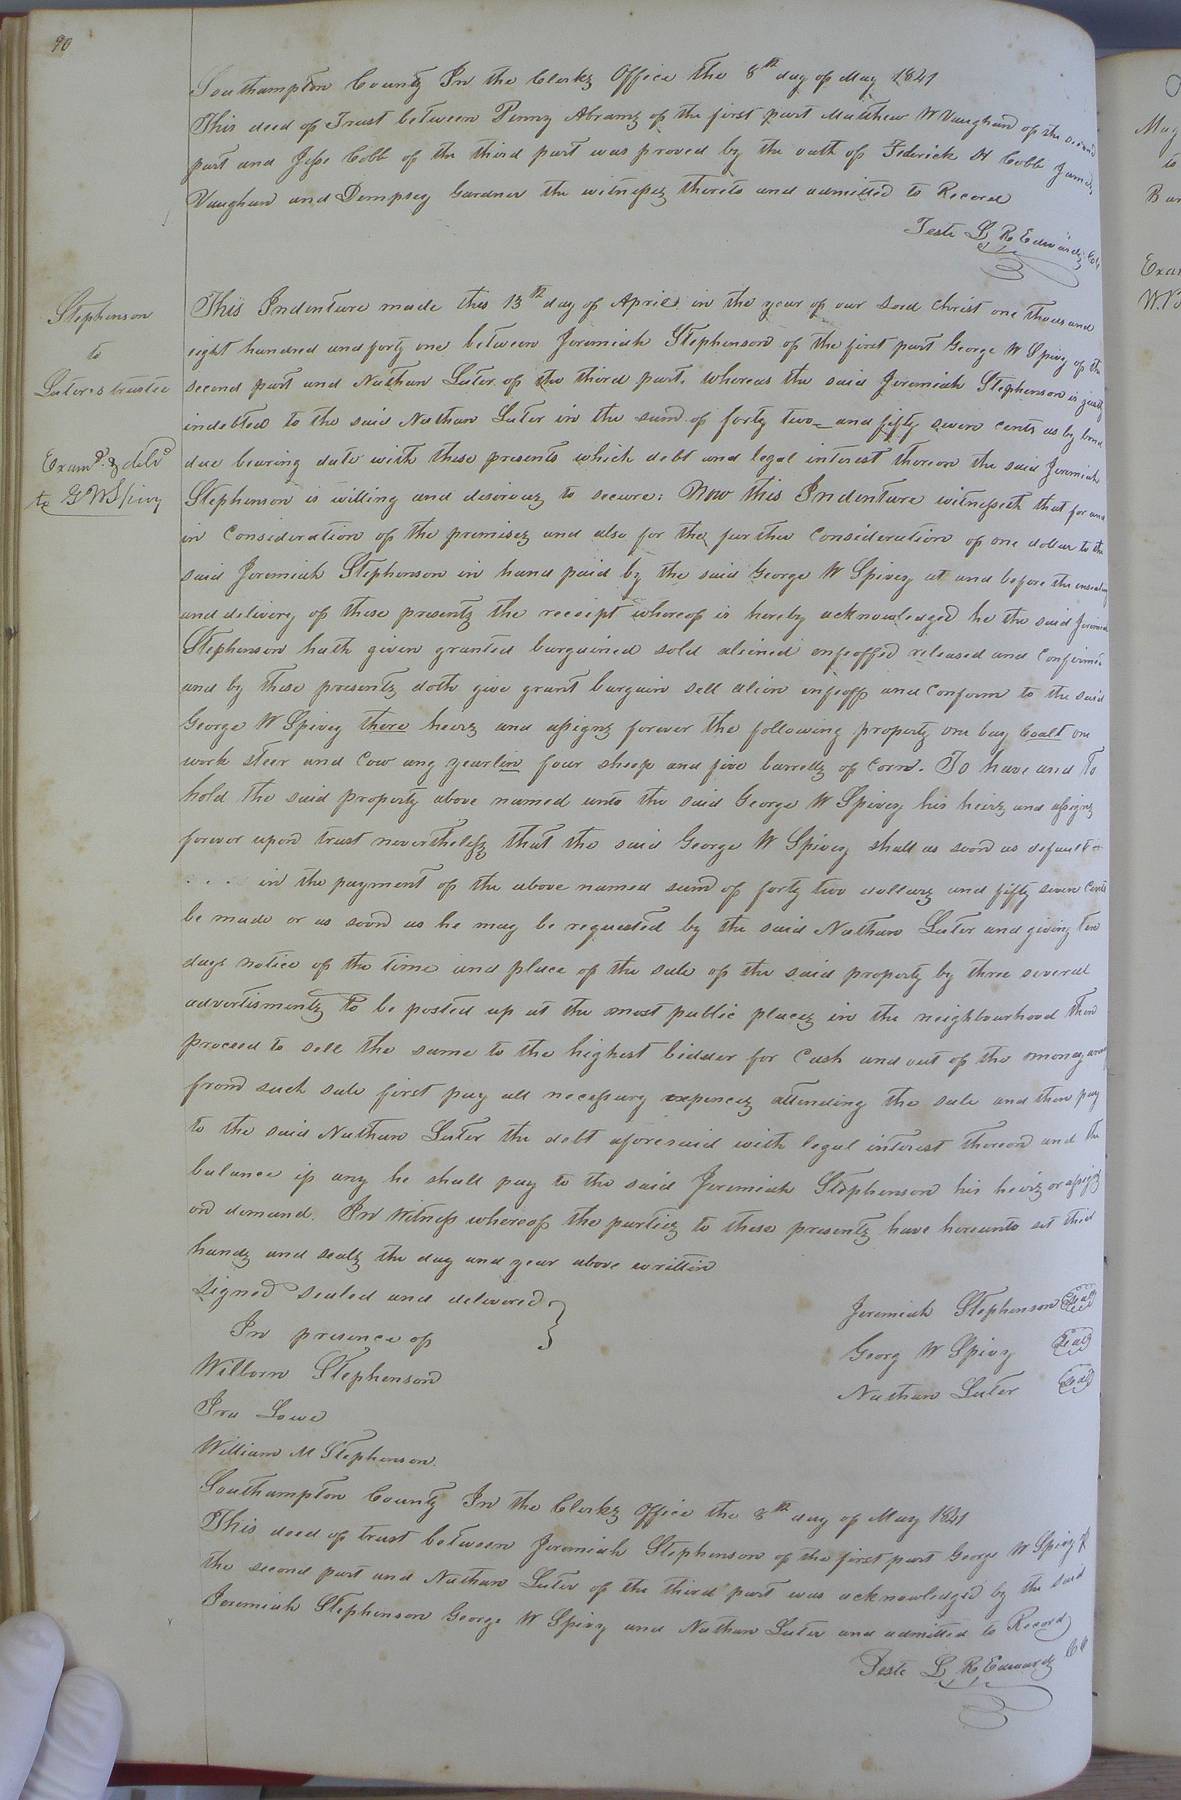 90
Southampton County In the Clerks Office the 8th day of May 1841
This deed of Trust between Penny Abrams of the first part Matthew W Vaughan of the second
part and Jesse Cobb of the third part was proved by the oath of Fiderick H Cobb James
Vaughan and Dempsey Gardner the witnesses thereto and admitted to Record
Teste L R Edwards
Stephenson
to
Luter's trustee
Examd. & deld
to G W Spivy
This Indenture made this 13th day of April in the year of our Lord Christ one thousand
eight hundred and forty one between Jeremiah Stephenson of the first part George W Spivy of the
second part and Nathan Luter of the third part. Whereas the said Jeremiah Stephenson is justly
indebted to the said Nathan Luter in the sum of forty two and fifty seven cents as by bond
due bearing date with these presents which debt and legal interest thereon the said Jeremiah
Stephenson is willing and desirous to secure: Now this Indenture witnesseth that for and
in Consideration of the premises and also for the further Consideration of one dollar to the
said Jeremiah Stephenson in hand paid by the said George W Spivey at and before the ensealing
and delivery of these presents the receipt whereof is hereby acknowledged he the said Jeremiah
Stephenson hath given granted bargained sold aliened enfeoffed released and Confirmed
and by these presents doth give grant bargain sell alien enfeoff and Conform to the said
George W Spivey there heirs and assigns forever the following property one bay Coalt one
work steer and Cow any yearlin four sheep and five barrells of Corn. To have and To
hold the said property above named unto the said George W Spivey his heirs and assigns
forever upon trust nevertheless that the said George W Spivey shall as soon as default
. . . in the payment of the above named sum of forty two dollars and fifty seven Cents
be made or as soon as he may be requested by the said Nathan Luter and giving ten
days notice of the time and place of the sale of the said property by three several
advertisments to be posted up at the most public places in the neighbourhood then
proceed to sell the same to the highest bidder for Cash and out of the money
from such sale first pay all necessary expences attending the sale and then pay
to the said Nathan Luter the debt aforesaid with legal interest thereon and the
balance if any he shall pay to the said Jeremiah Stephenson his heirs or assigns
on demand. In Witness whereof the parties to these presents have hereunto set their
hands and seals the day and year above written
Signed Sealed and delivered
In presence of
Jeremiah Stephenson Seal
Georg W Spivy Seal
Nathan Luter Seal
Willorn Stephenson
Ira Lowe
William M Stephenson
Southampton County In the Clerks Office the 8th day of May 1841
This deed of trust between Jeremiah Stephenson of the first part George W Spivy of
the second part and Nathan Luter of the third part was acknowledged by the said
Jeremiah Stephenson George W Spivy and Nathan Luter and admitted to Record
Teste L R Edwards
May
to